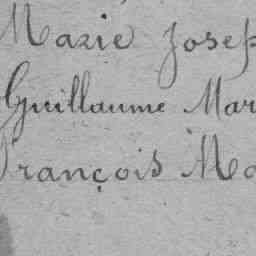 Marie Josep
Guillaume Mar
François Ma